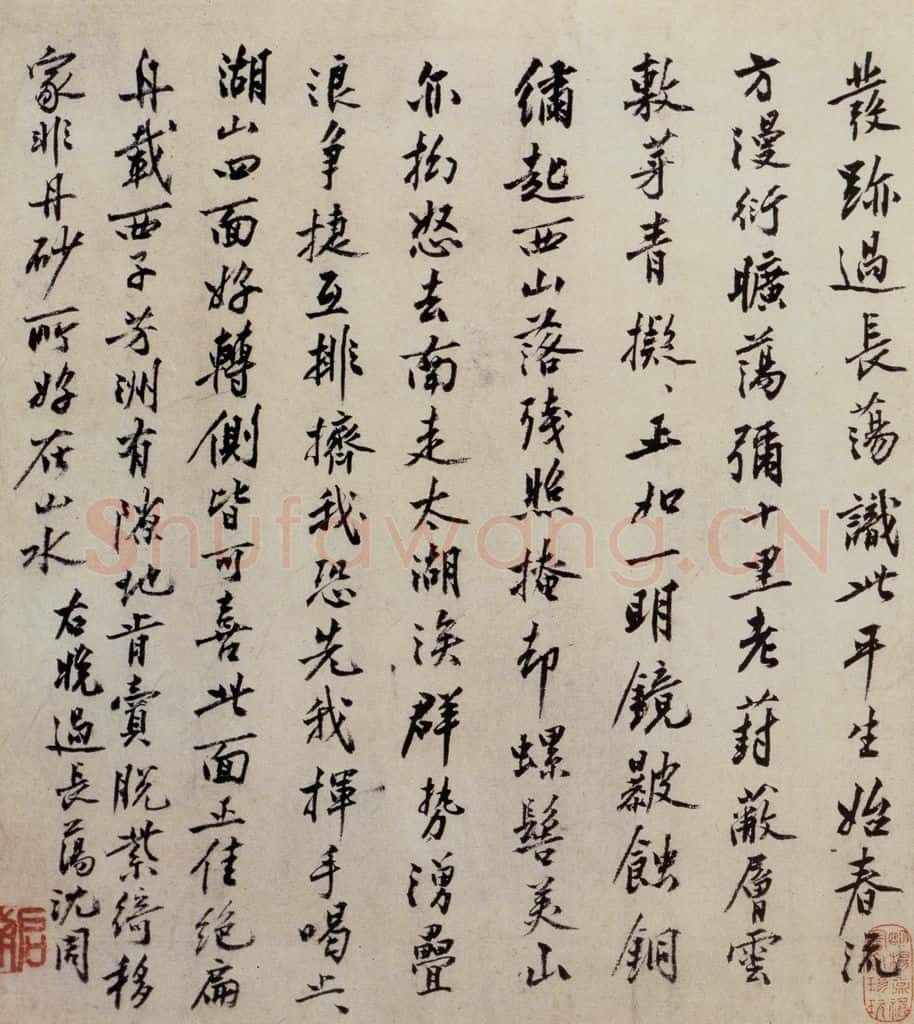 發跡過長蕩識此平生始春流
方漫衍曠蕩彌十里老葑蔽層雲
敷芽青擬〻正如一明鏡皺蝕銅
繡起西山落殘照掩却螺髻美山
亦拗怒去南走太湖涘群勢湧疊
浪爭捷互排擠我恐先我揮手喝止〻
湖山四面好轉側皆可喜此面正佳絕扁
舟載西子芳洲有隙地肯賣脫紫綺移
家非丹砂所好在山水
右晚過長蕩沈周
Shufawang.CN